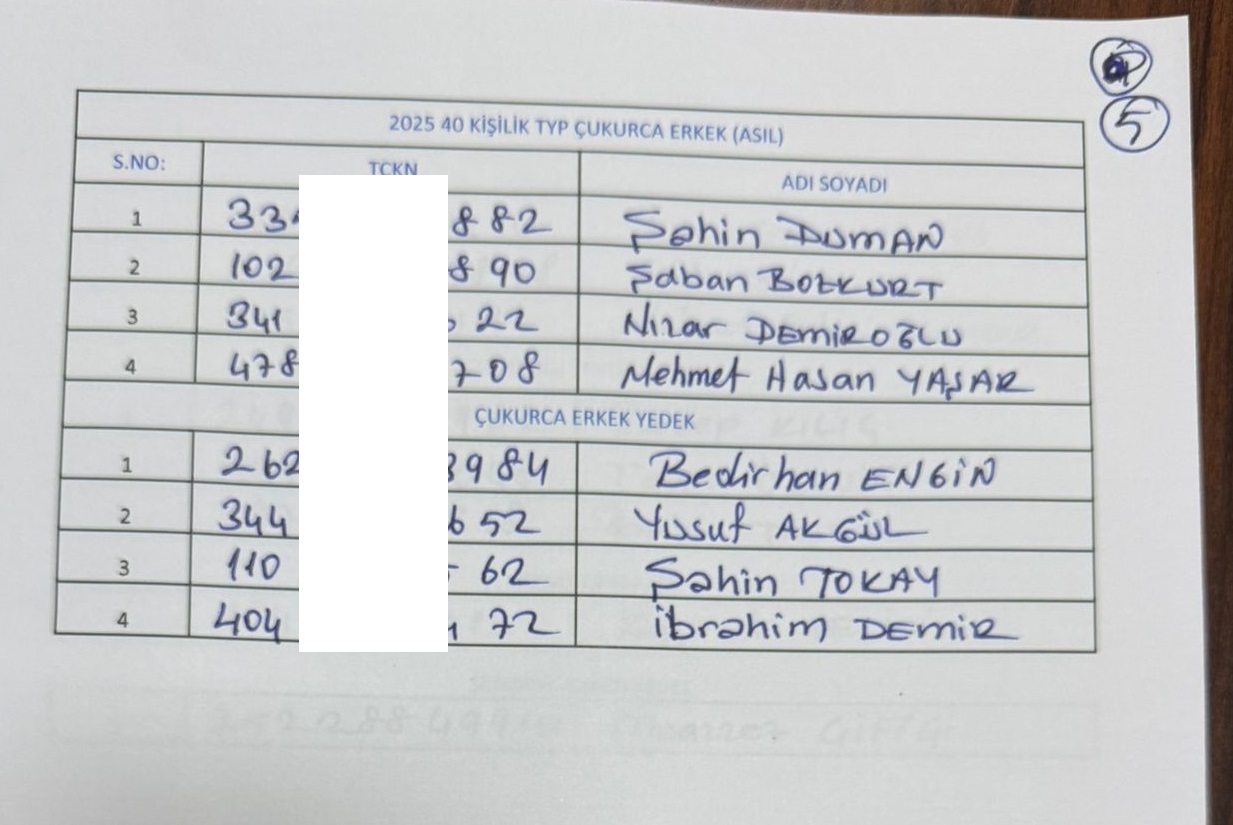 5
2025 40 KİŞİLİK TYP ÇUKURCA ERKEK (ASIL)
S.NO: TCKN ADI SOYADI
1 33 882 Şahin DUMAN
2 102 890 Şaban BOZKURT
3 341 22 Nızar DEMİROĞLU
4 478 708 Mehmet Hasan YAŞAR
ÇUKURCA ERKEK YEDEK
1 262 984 Bedirhan ENGİN
2 344 652 Yusuf AKGÜL
3 110 62 Şahin TOKAY
4 404 72 İbrahim DEMİR